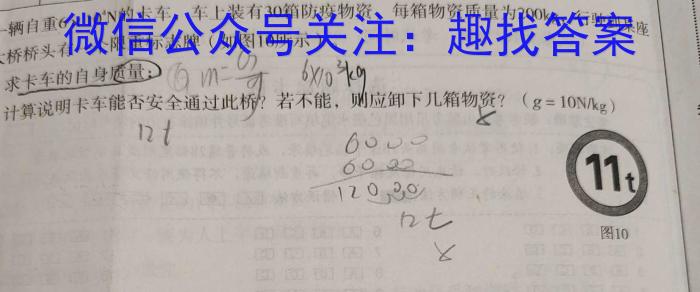 一辆自重6 N的卡车，车上装有30箱防疫物资，每箱物资质量为200k 行驶到某座
大桥桥头有 限重标志牌（如图10所示
微信公众号关注：趣找答案
求卡车的自身质量； ① m= 6×10²kg
计算说明卡车能否安全通过此桥？若不能，则应卸下几箱物资？（g=10N/kg）
12t
6000
6000
12000
12t
11t
图10